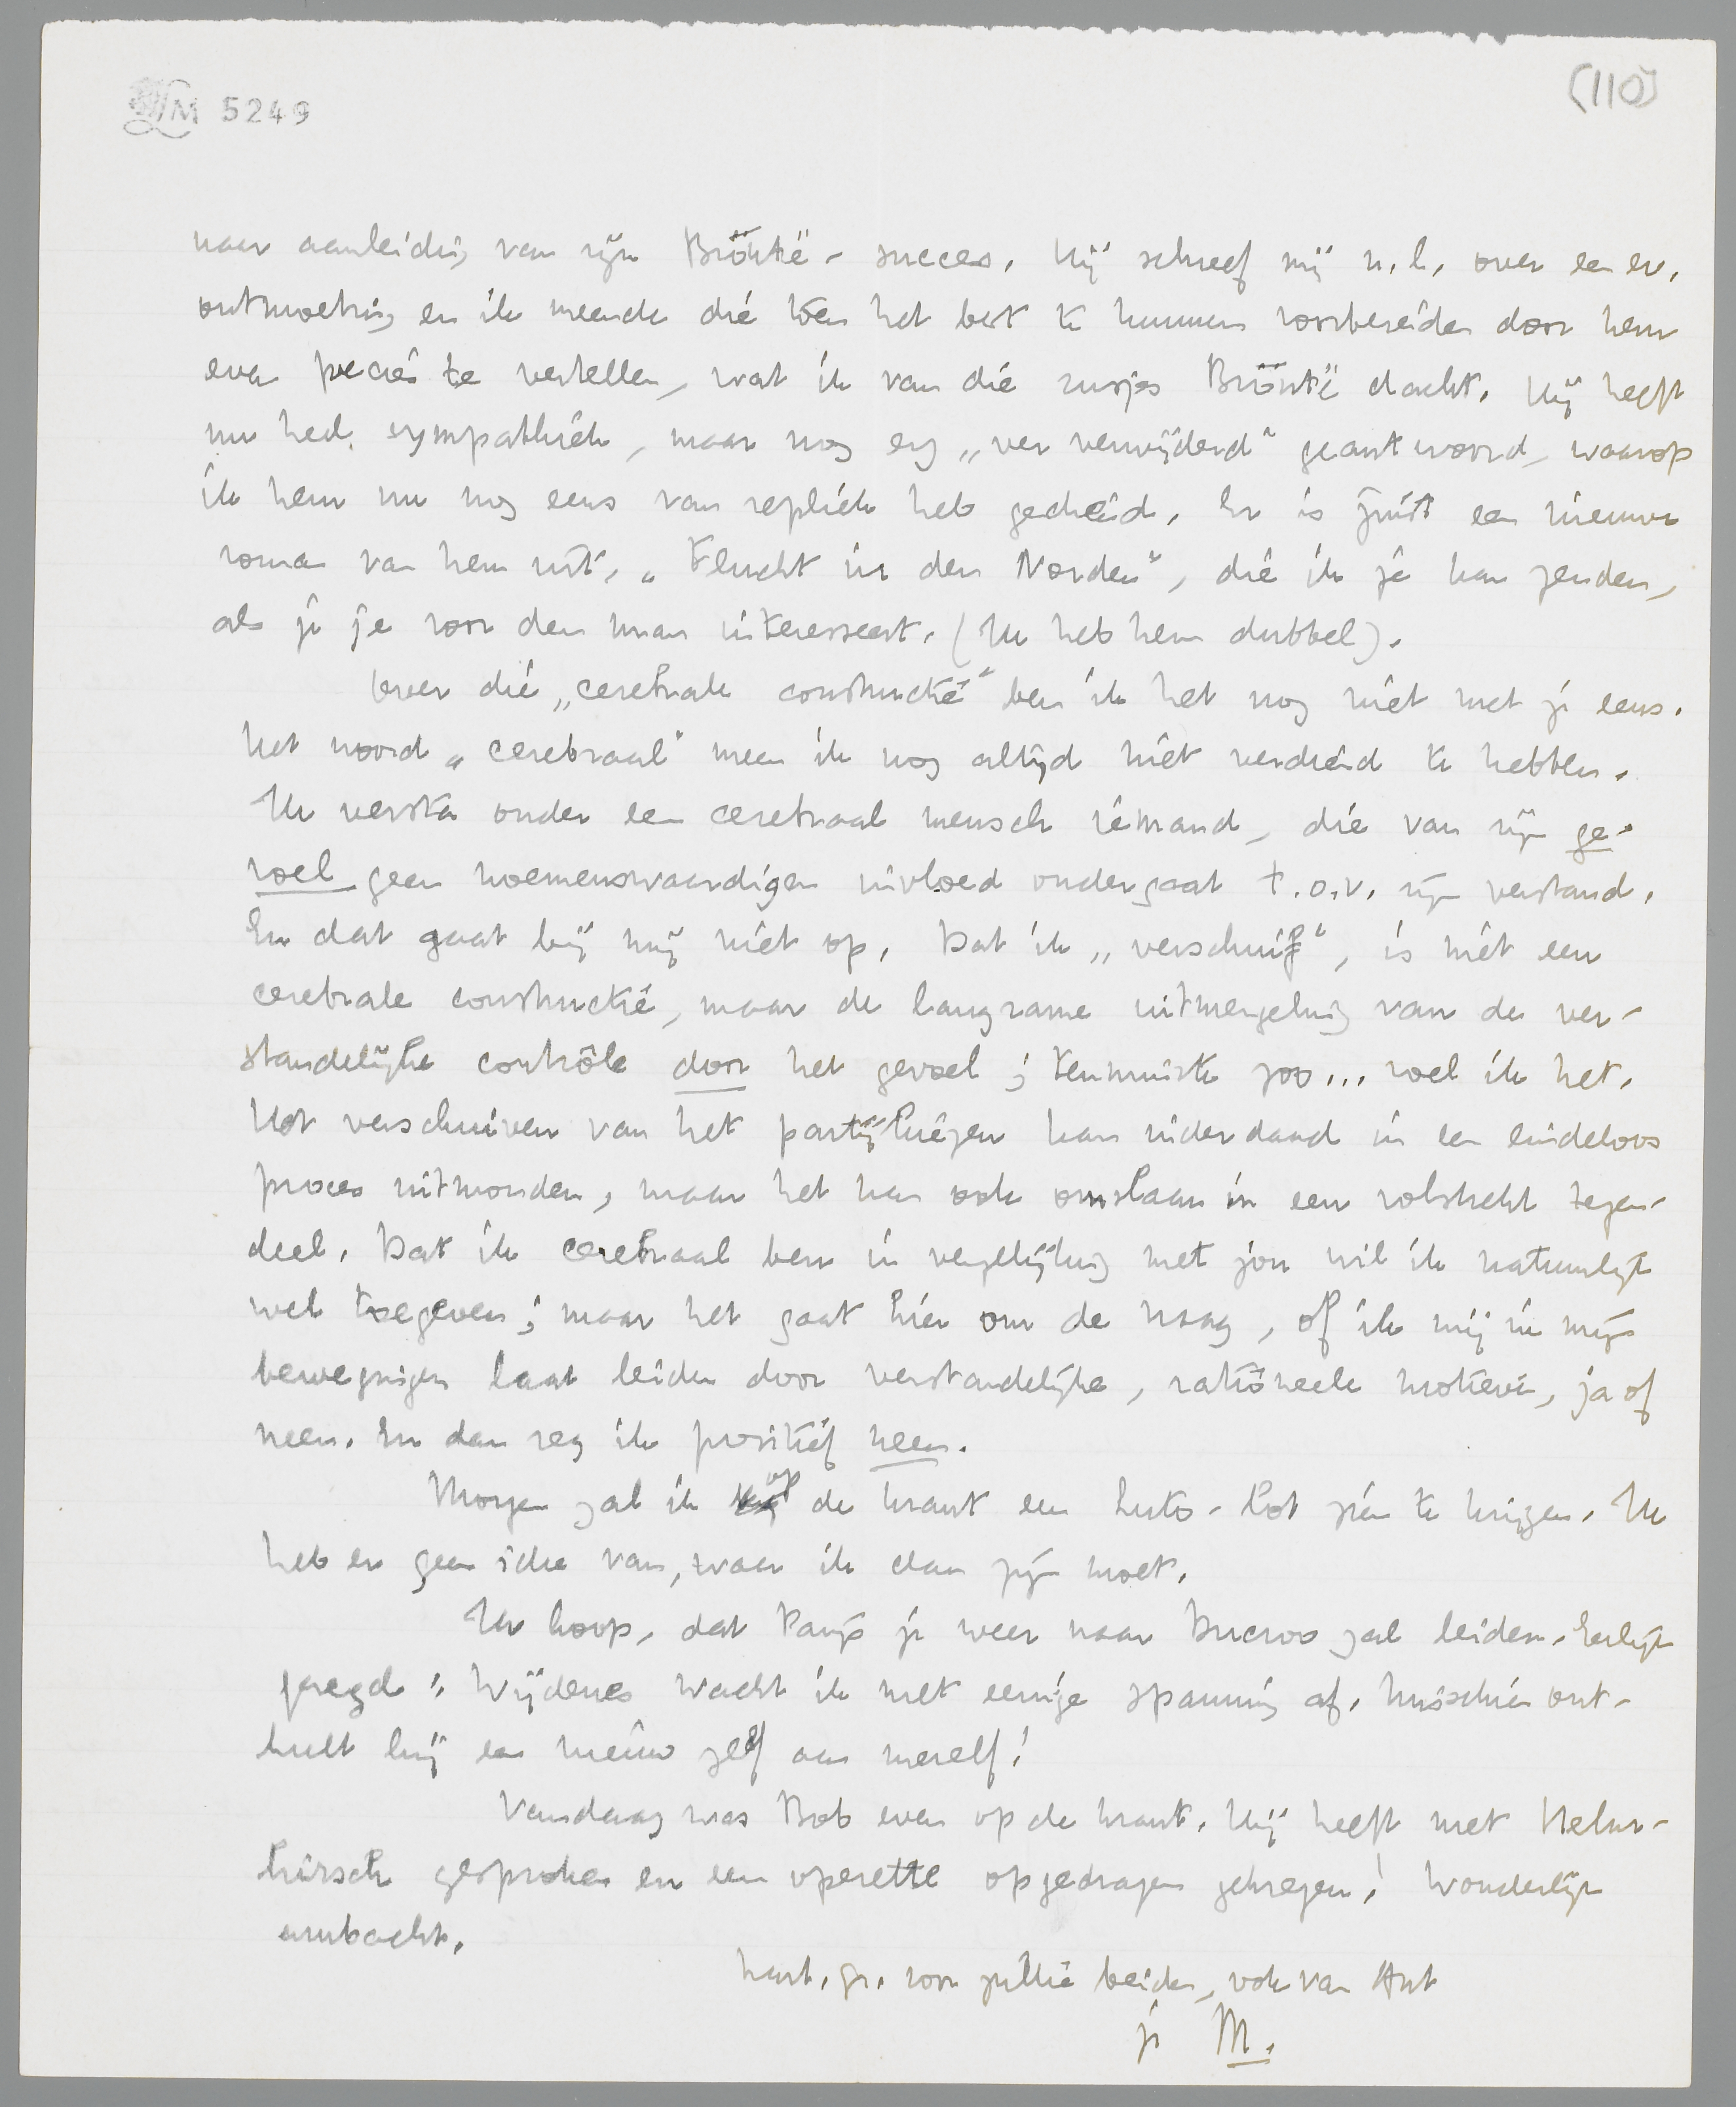 LM 5249
(110)
naar aanleiding van zijn Brontë-succes. Hij schreef mij n.l. over een ev.
ontmoeting en ik meende die toen het best te kunnen voorbereiden door hem
even precies te vertellen, wat ik van die zusjes Brontë dacht. Hij heeft
nu heel sympathiek, maar nog erg „ver verwijderd" geantwoord, waarop
ik hem nu nog eens van repliek heb gediend. Er is juist een nieuwe
roman van hem uit, „Flucht in den Norden", die ik je kan zenden,
als je je voor den man interesseert. (Ik heb hem dubbel).
Over die „cerebrale constructie" ben ik het nog niet met je eens.
Het woord „cerebraal" meen ik nog altijd niet verdiend te hebben.
Ik versta onder een cerebraal mensch iemand, die van zijn ge-
voel geen noemenswaardigen invloed ondergaat t.o.v. zijn verstand.
En dat gaat bij mij niet op. Dat ik „verschuif", is niet een
cerebrale constructie, maar de langzame uitmergeling van de ver-
standelijke contrôle door het gevoel; tenminste zoo... voel ik het.
Het verschuiven van het partij kiezen kan inderdaad in een eindeloos
proces uitmonden, maar het kan ook omslaan in een volstrekt tegen-
deel. Dat ik cerebraal ben in vergelijking met jou wil ik natuurlijk
wel toegeven; maar het gaat hier om de vraag, of ik mij in mijn
bewegingen laat leiden door verstandelijke, rationeele motieven, ja of
neen. En dan zeg ik positief neen.
Morgen zal ik op de krant een Luto-lot zien te krijgen. Ik
heb er geen idee van, waar ik dan zijn moet.
Ik hoop, dat Parijs je weer naar Ducroo zal leiden. Eerlijk
gezegd: Wijdenes wacht ik met eenige spanning af. Misschien ont-
hult hij een nieuw zelf aan mezelf!
Vandaag was Bob even op de krant. Hij heeft met Helm-
hirsch gesproken en een operette opgedragen gekregen! Wonderlijk
ambacht.
hart. gr. voor jullie beiden, ook van Ant
je M.